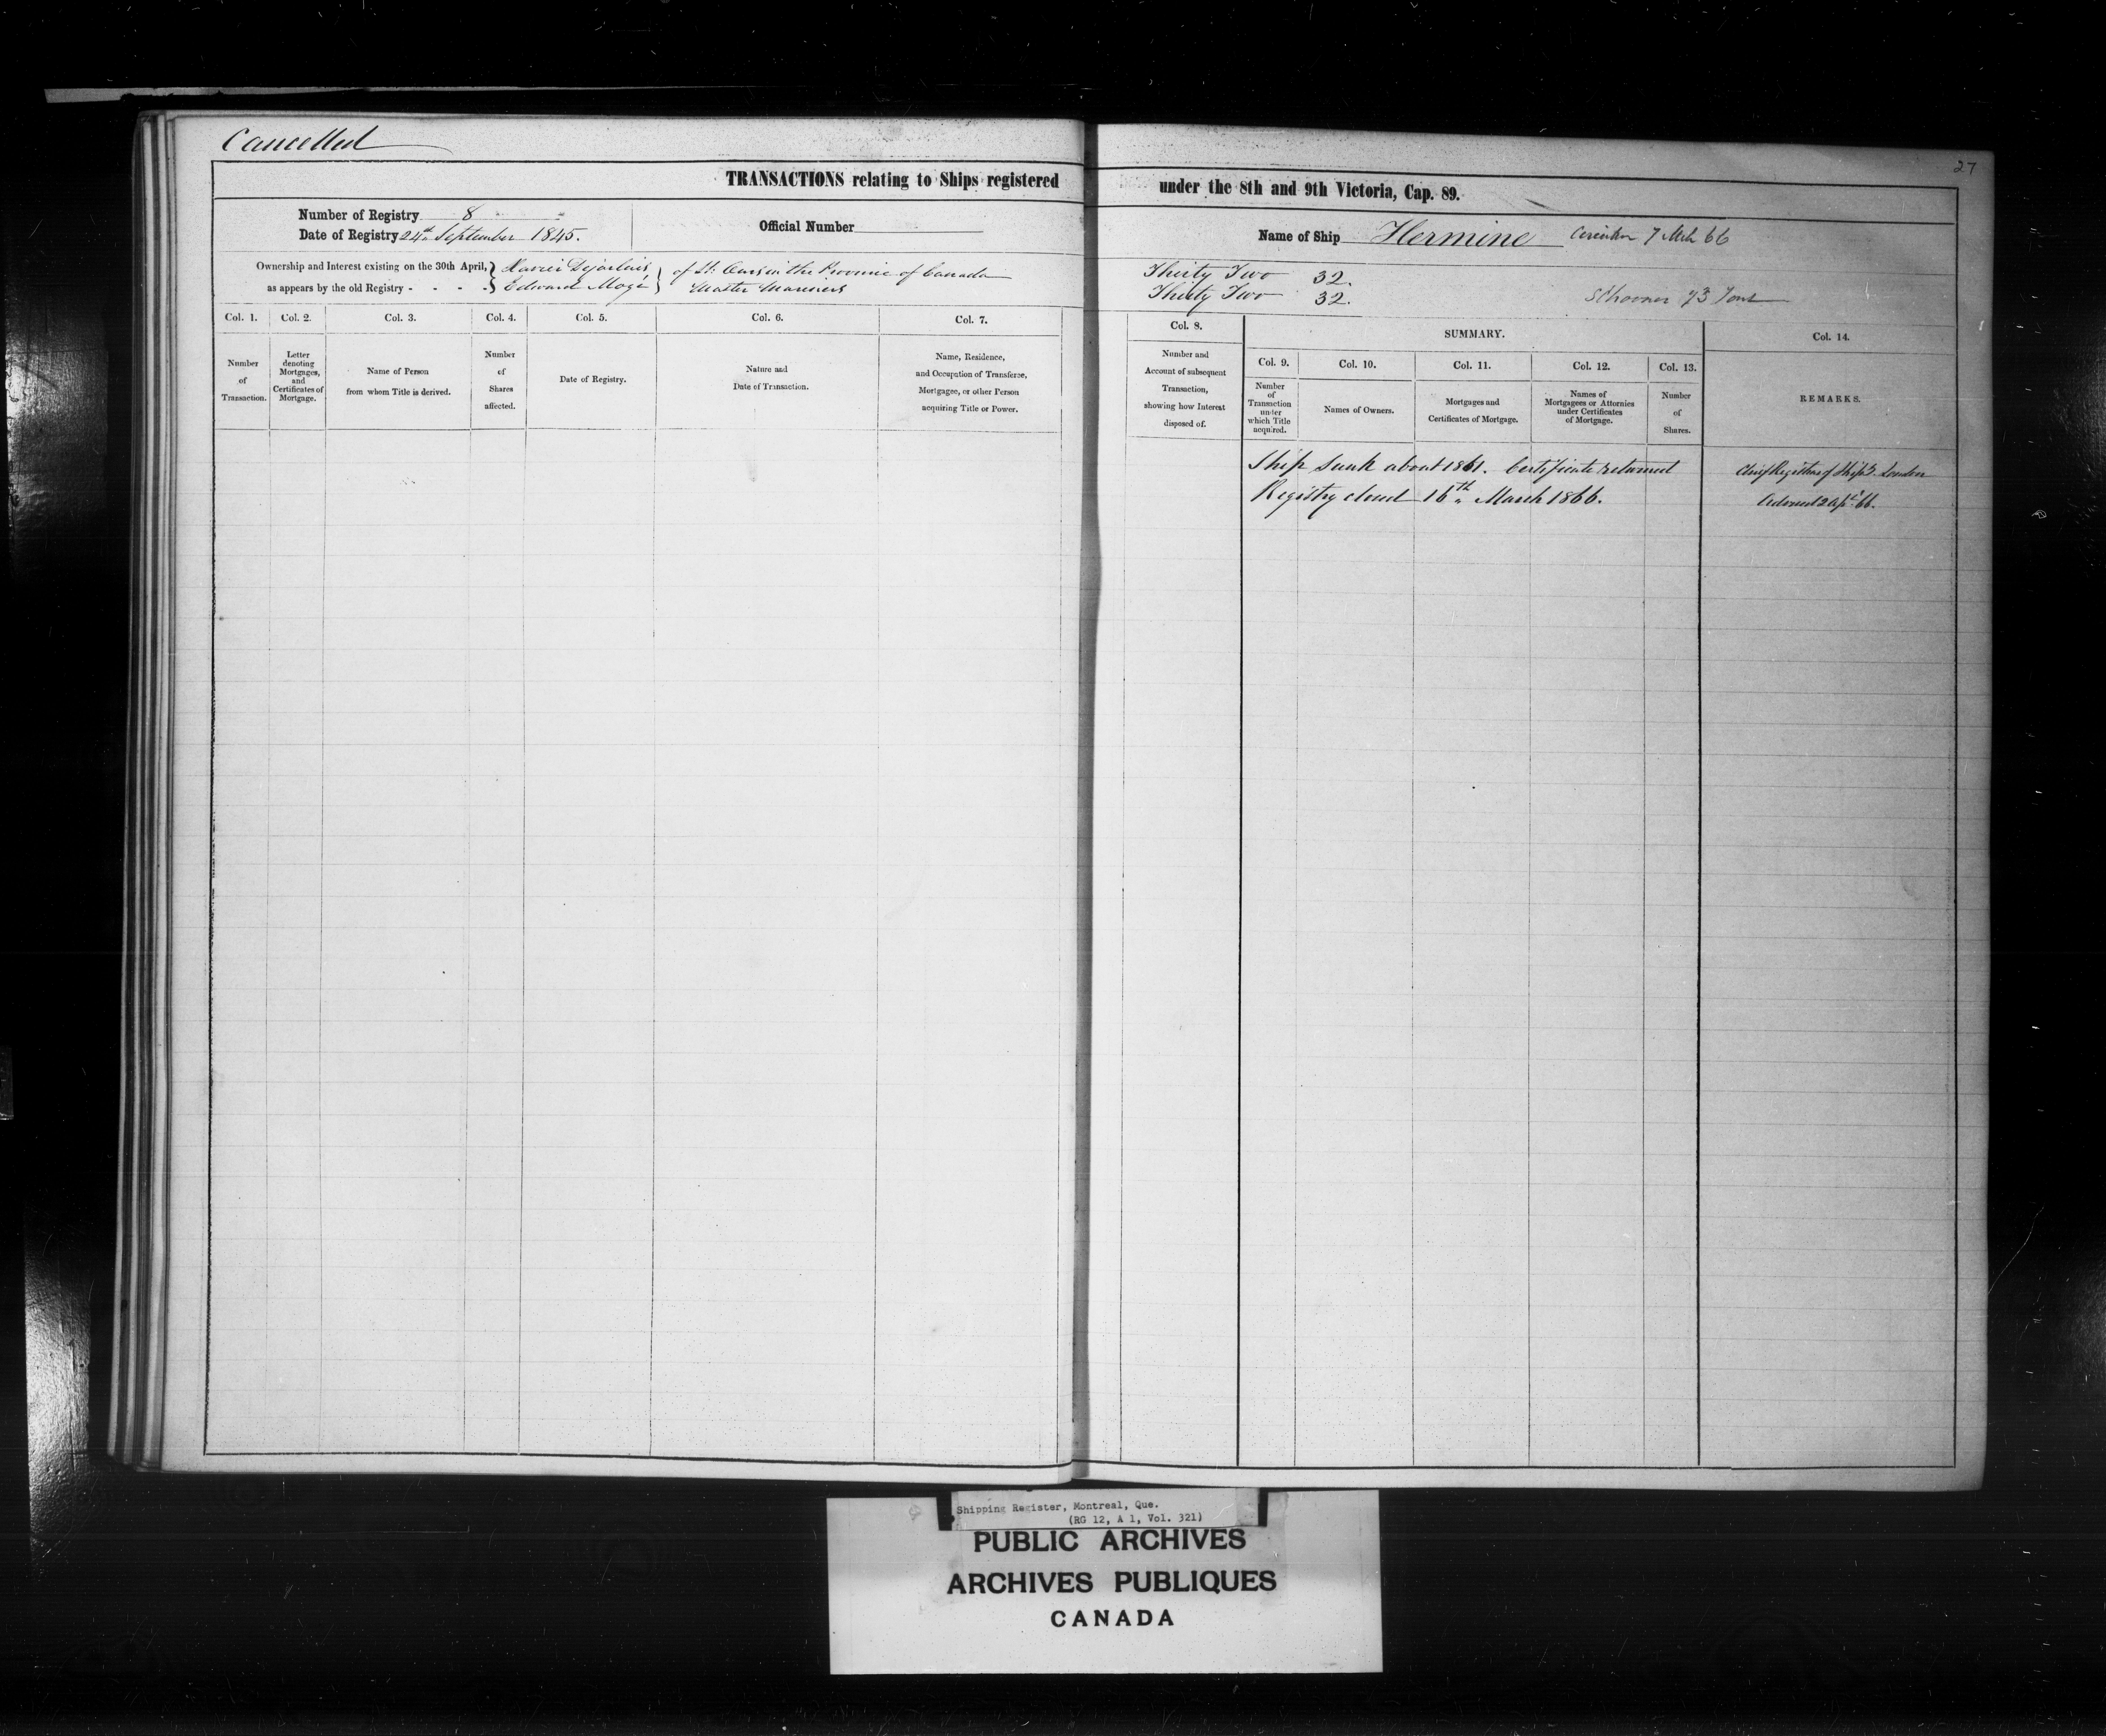 Cancelled
27
TRANSACTIONS relating to Ships registered under the 8th and 9th Victoria, Cap. 89.
Number of Registry 8
Date of Registry 24th September 1845.
Official Number
Name of Ship Hermine 7 Mch 66
Ownership and Interest existing on the 30th April,
as appears by the old Registry - - - -
Xavier Dejarlais
Edward Mogé
of St. in the Province of Canada
Master Mariners
Thirty Two 32.
Thirty Two 32.
Schooner 73 Tons
Col. 1.
Number
of
Transaction.
Col. 2.
Letter
denoting
Mortgages,
and
Certificates of
Mortgage.
Col. 3.
Name of Person
from whom Title is derived.
Col. 4.
Number
of
Shares
affected.
Col. 5.
Date of Registry.
Col. 6.
Nature and
Date of Transaction.
Col. 7.
Name, Residence,
and Occupation of Transferee,
Mortgagee, or other Person
acquiring Title or Power.
Col. 8.
Number and
Account of subsequent
Transaction,
showing how Interest
disposed of.
SUMMARY.
Col. 9.
Number
of
Transaction
under
which Title
acquired.
Col. 10.
Names of Owners.
Col. 11.
Mortgages and
Certificates of Mortgage.
Col. 12.
Names of
Mortgagees or Attornies
under Certificates
of Mortgage.
Col. 13.
Number
of
Shares.
Col. 14.
REMARKS.
Ship sunk about 1861. Certificate returned
Registry closed 16th March 1866.
Chief Registrar of Ships London
Advised 2 Apl 66.
Shipping Register, Montreal, Que.
(RG 12, A 1, Vol. 321)
PUBLIC ARCHIVES
ARCHIVES PUBLIQUES
CANADA